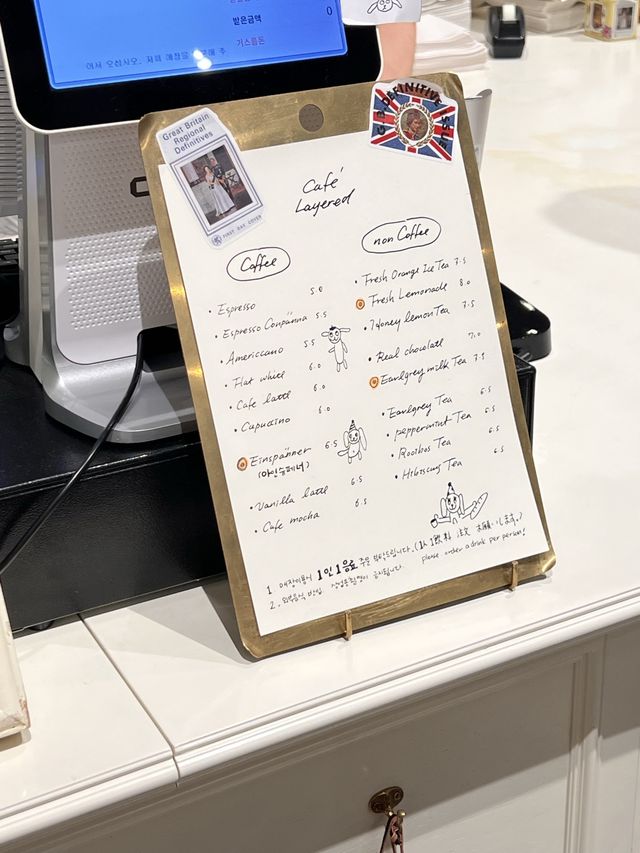 받은금액 0
거스름돈
어서 오십시오.
Great Britain
Regional
Definitives
FIRST DAY COVER
G.B. DEFINITIVE ISSUE
Café
Layered
Coffee
• Espresso 5.0
• Espresso Conpanna 5.5
• Americcano 5.5
• Flat white 6.0
• Cafe latte 6.0
• Capucino 6.0
Einspänner 6.5
(아인슈페너)
• Vanilla latte 6.5
• Cafe mocha 6.5
non Coffee
• Fresh Orange Ice Tea 7.5
Fresh Lemonade 8.0
• Honey lemon Tea 7.5
• Real chocolate 7.0
Earlgrey milk Tea 7.5
• Earlgrey Tea 6.5
• peppermint Tea 6.5
• Rooibos Tea 6.5
• Hibiscus Tea
1. 매장이용시 1인 1음료 주문 부탁드립니다. (1人1飲料 注文 お願いします。)
please order a drink per person!
2. 외부음식 반입, 상업용촬영이 금지됩니다.